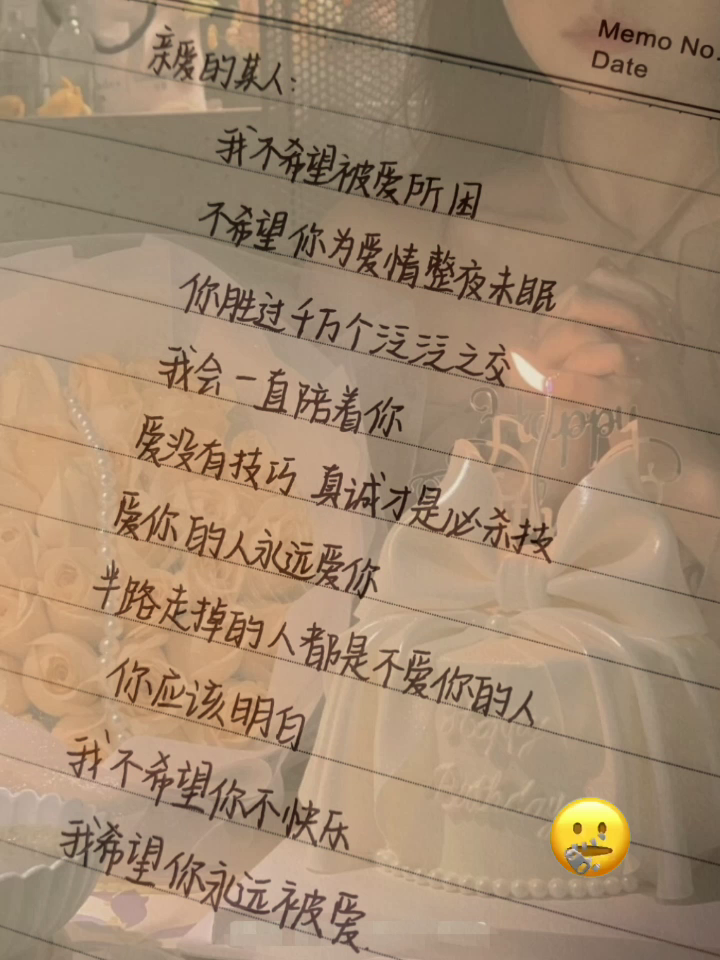 Memo No.
Date
亲爱的某人:
我不希望被爱所困
不希望你为爱情整夜未眠
你胜过千万个泛泛之交
我会一直陪着你
爱没有技巧 真诚才是必杀技
爱你的人永远爱你
半路走掉的人都是不爱你的人
你应该明白
我不希望你不快乐
我希望你永远被爱.
Happy
Birthday